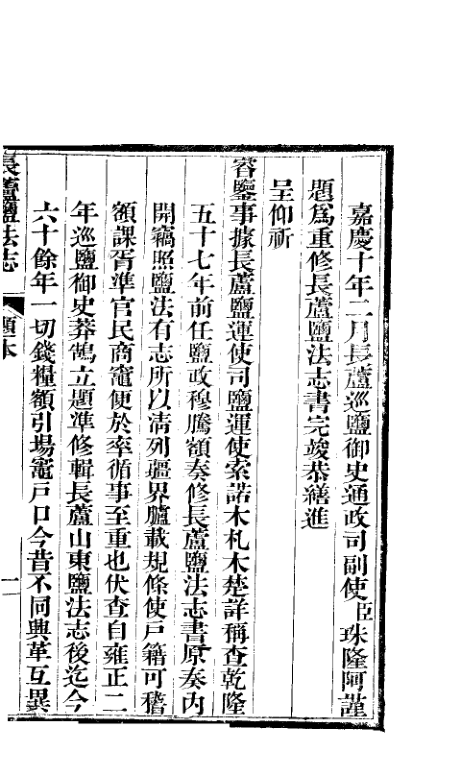 嘉慶十年二月長蘆巡鹽御史通政司副使臣珠隆阿謹
題爲重修長蘆鹽法志書完竣恭繕進
呈仰祈
睿鑒事據長蘆鹽運使司鹽運使索諾木札木楚詳稱查乾隆
五十七年前任鹽政穆騰額奏修長蘆鹽法志書原奏內
開竊照鹽法有志所以清列疆界臚載規條使戸籍可稽
額課胥準官民商竈便於率循事至重也伏查自雍正二
年巡鹽御史莽鵠立題準修輯長蘆山東鹽法志後迄今
六十餘年一切錢糧額引場竈戸口今昔不同興革互異
長蘆鹽法志
題本
一